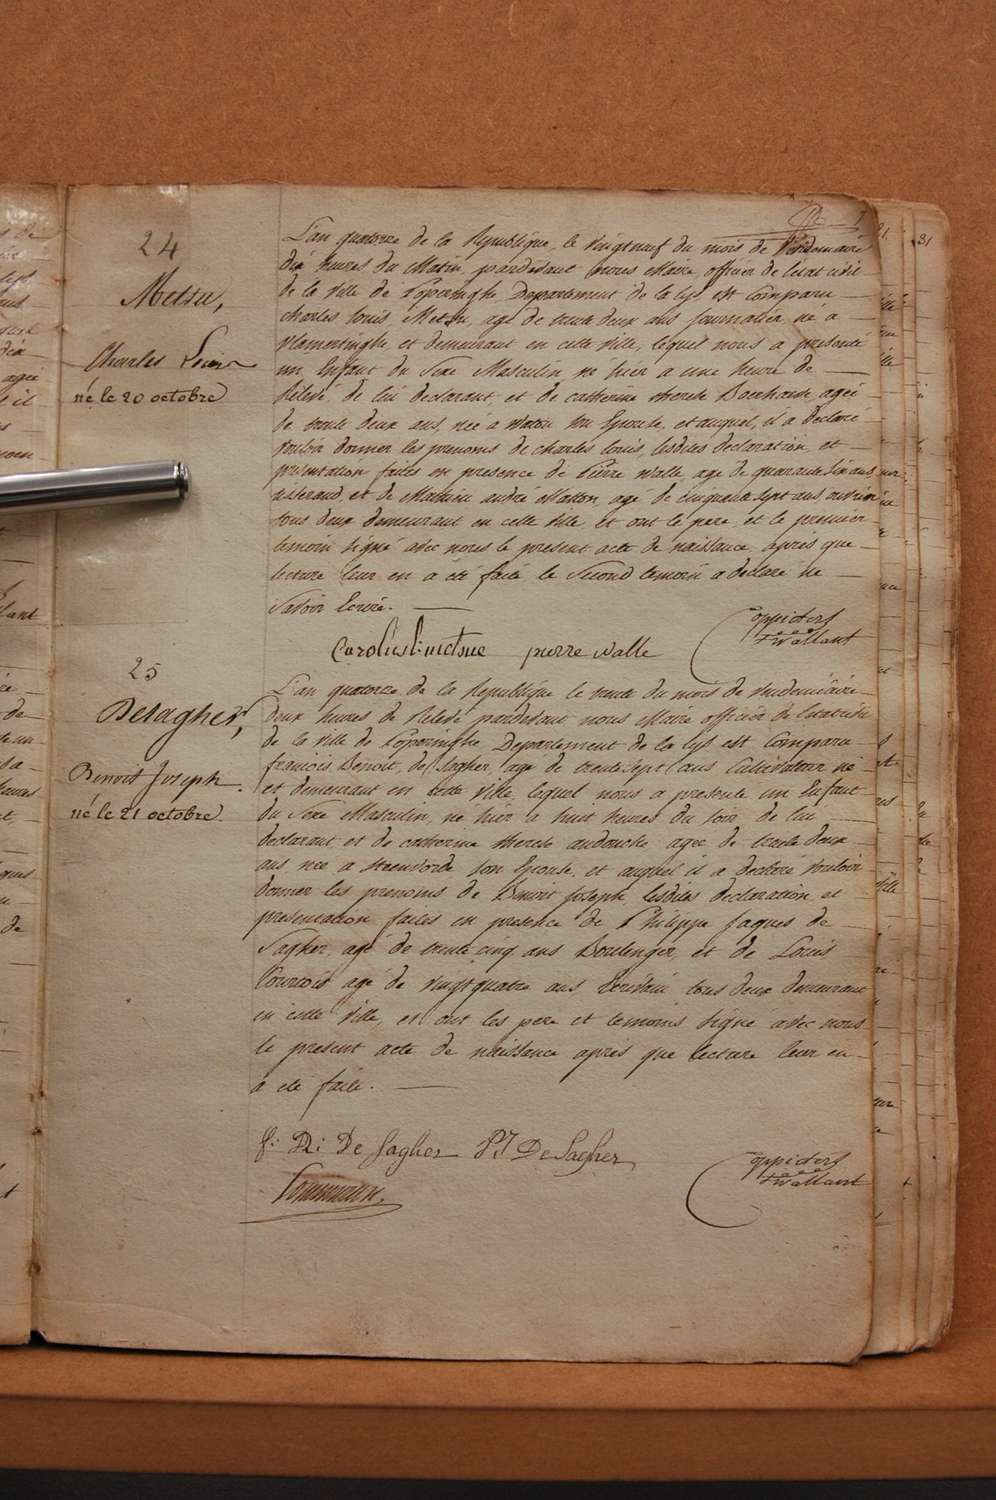 24
Metsu,
Charles Louis
né le 20 octobre
L'an quatorze de la Republique, le vingtneuf du mois de Vendemiaire
dix heures du Matin, pardevant nous Maire, officier de l'etat civil
de la Ville de Poperinghe, Departement de la Lys, est Comparu
charles Louis Metsu, agé de trente deux ans Journalier, né a
Vlamertinghe et demeurant en cette Ville, lequel nous a presenté
un Enfant du Sexe Masculin, né hier a une heure de
Relevé, de lui declarant et de catherine therese agée
de trente deux ans, née a Watou son Epouse, et auquel, il a declaré
vouloir donner les prenoms de charles Louis, lesdites declaration, et
presentation faites en presence de Pierre Walle, age de quarante six ans
tisserand, et de Mathieu andré Matton, agé de cinquante sept ans ouvrier
tous deux demeurant en cette Ville, et ont le pere, et le premier
temoin signé avec nous le present acte de naissance, après que
lecture leur en a été faite le Second temoin a declaré ne
Savoir Ecrire.
Carolus l: metsue pierre walle
Coppieters
twallant
25
Desagher,
Benoit Joseph
né le 21 octobre
L'an quatorze de la Republique le trente du mois de vendemiaire
deux heures de Relevé pardevant nous Maire officier de l'etat civil
de la Ville de Poperinghe, Departement de la Lys est Comparu
francois Benoit, de Sagher, agé de trente sept ans Cultivateur né
et demeurant en cette Ville, lequel nous a presenté un Enfant
du Sexe Masculin, né hier a huit heures du soir, de lui
declarant et de catherine therese audouche agée de trente deux
ans née a Steenvorde son Epouse, et auquel il a declaré vouloir
donner les prenoms de Benoit Joseph, lesdites declaration, et
presentation faites en presence de Philippe Jaques de
Sagher, agé de trente cinq ans Boulenger, et de Louis
agé de vingtquatre ans tous deux demeurant
en cette Ville, et ont les pere et temoins signé avec nous
le present acte de naissance après que lecture leur en
a été faite.
f: B: De Sagher P: J DeSagher
Coppieters
twallant
31